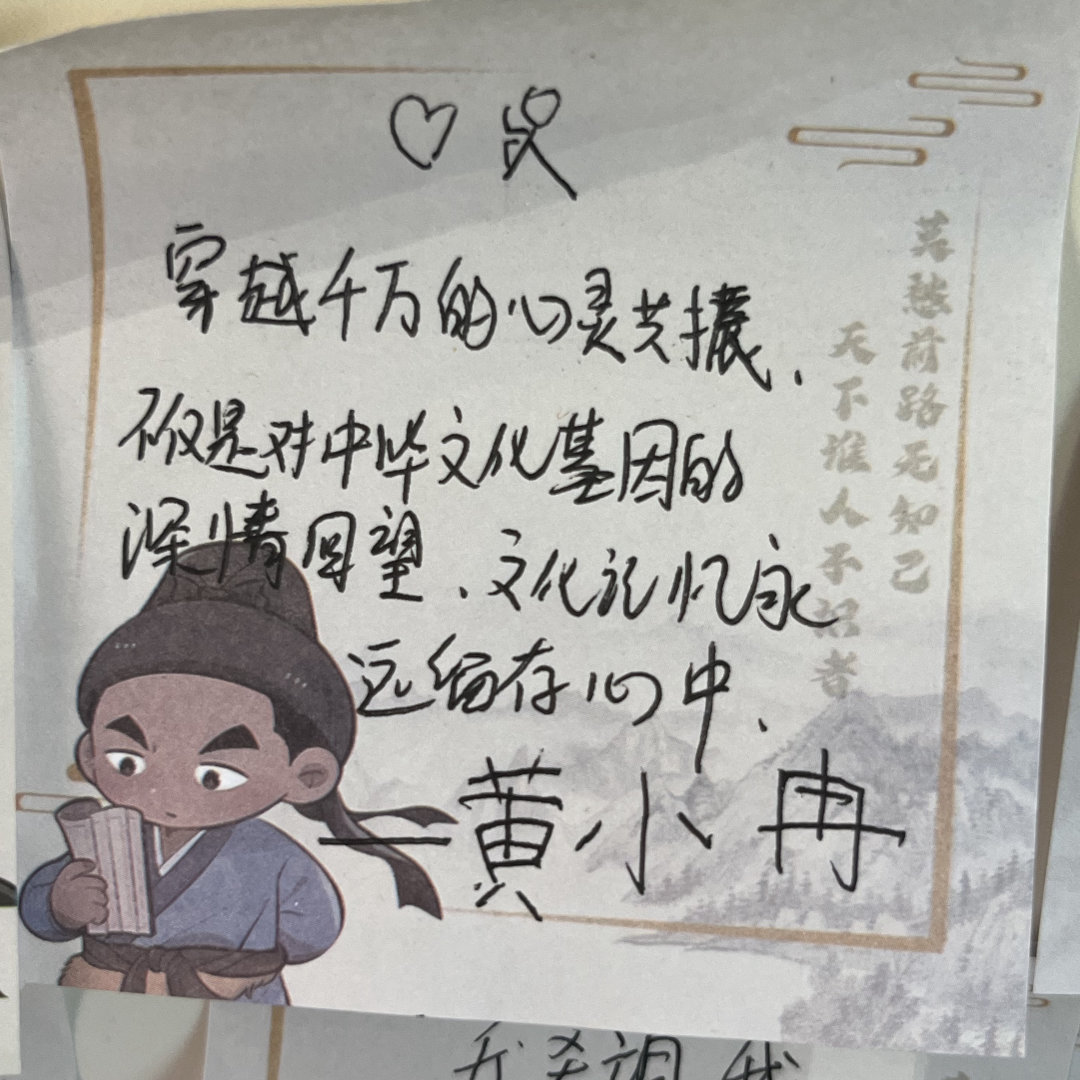 穿越千万的心灵共
不仅是对中华文化基因的
深情回望、文化记忆永
远留存心中、
—黄小冉
莫愁前路无知己
天下谁人不识君